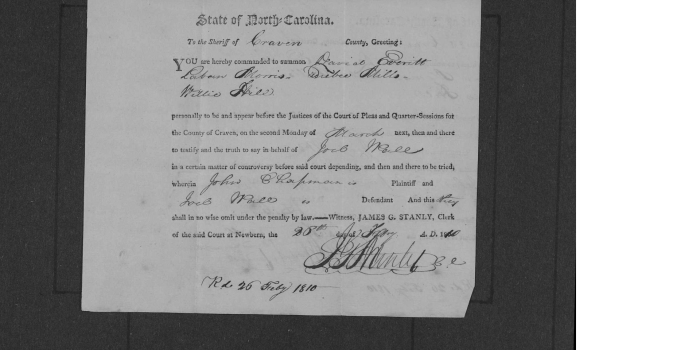 State of North-Carolina.
To the Sheriff of Craven County, Greeting:
YOU are hereby commanded to summon David Everitt
Laban Morris Mills
Willie Hill
personally to be and appear before the Justices of the Court of Pleas and Quarter-Sessions for
the County of Craven, on the second Monday of March next, then and there
to testify and the truth to say in behalf of Joel Wall
in a certain matter of controversy before said court depending, and then and there to be tried,
wherein John Chapman is Plaintiff and
Joel Wall is Defendant And this they
shall in no wise omit under the penalty by law.—Witness, JAMES G. STANLY, Clerk
of the said Court at Newbern, the day of A. D. 1810
J G Stanly
Rd. 26 Feby 1810